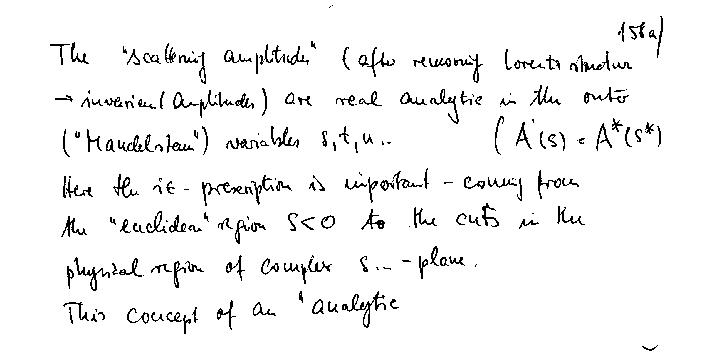 156a)
The "scattering amplitudes" (after removing Lorentz structure
→ invariant amplitudes) are real analytic in the outer
("Mandelstam") variables s, t, u .. (A(s) = A*(s*)
Here the iε - prescription is important - coming from
the "euclidean" region s<0 to the cuts in the
physical region of complex s.. - plane.
This concept of an "analytic